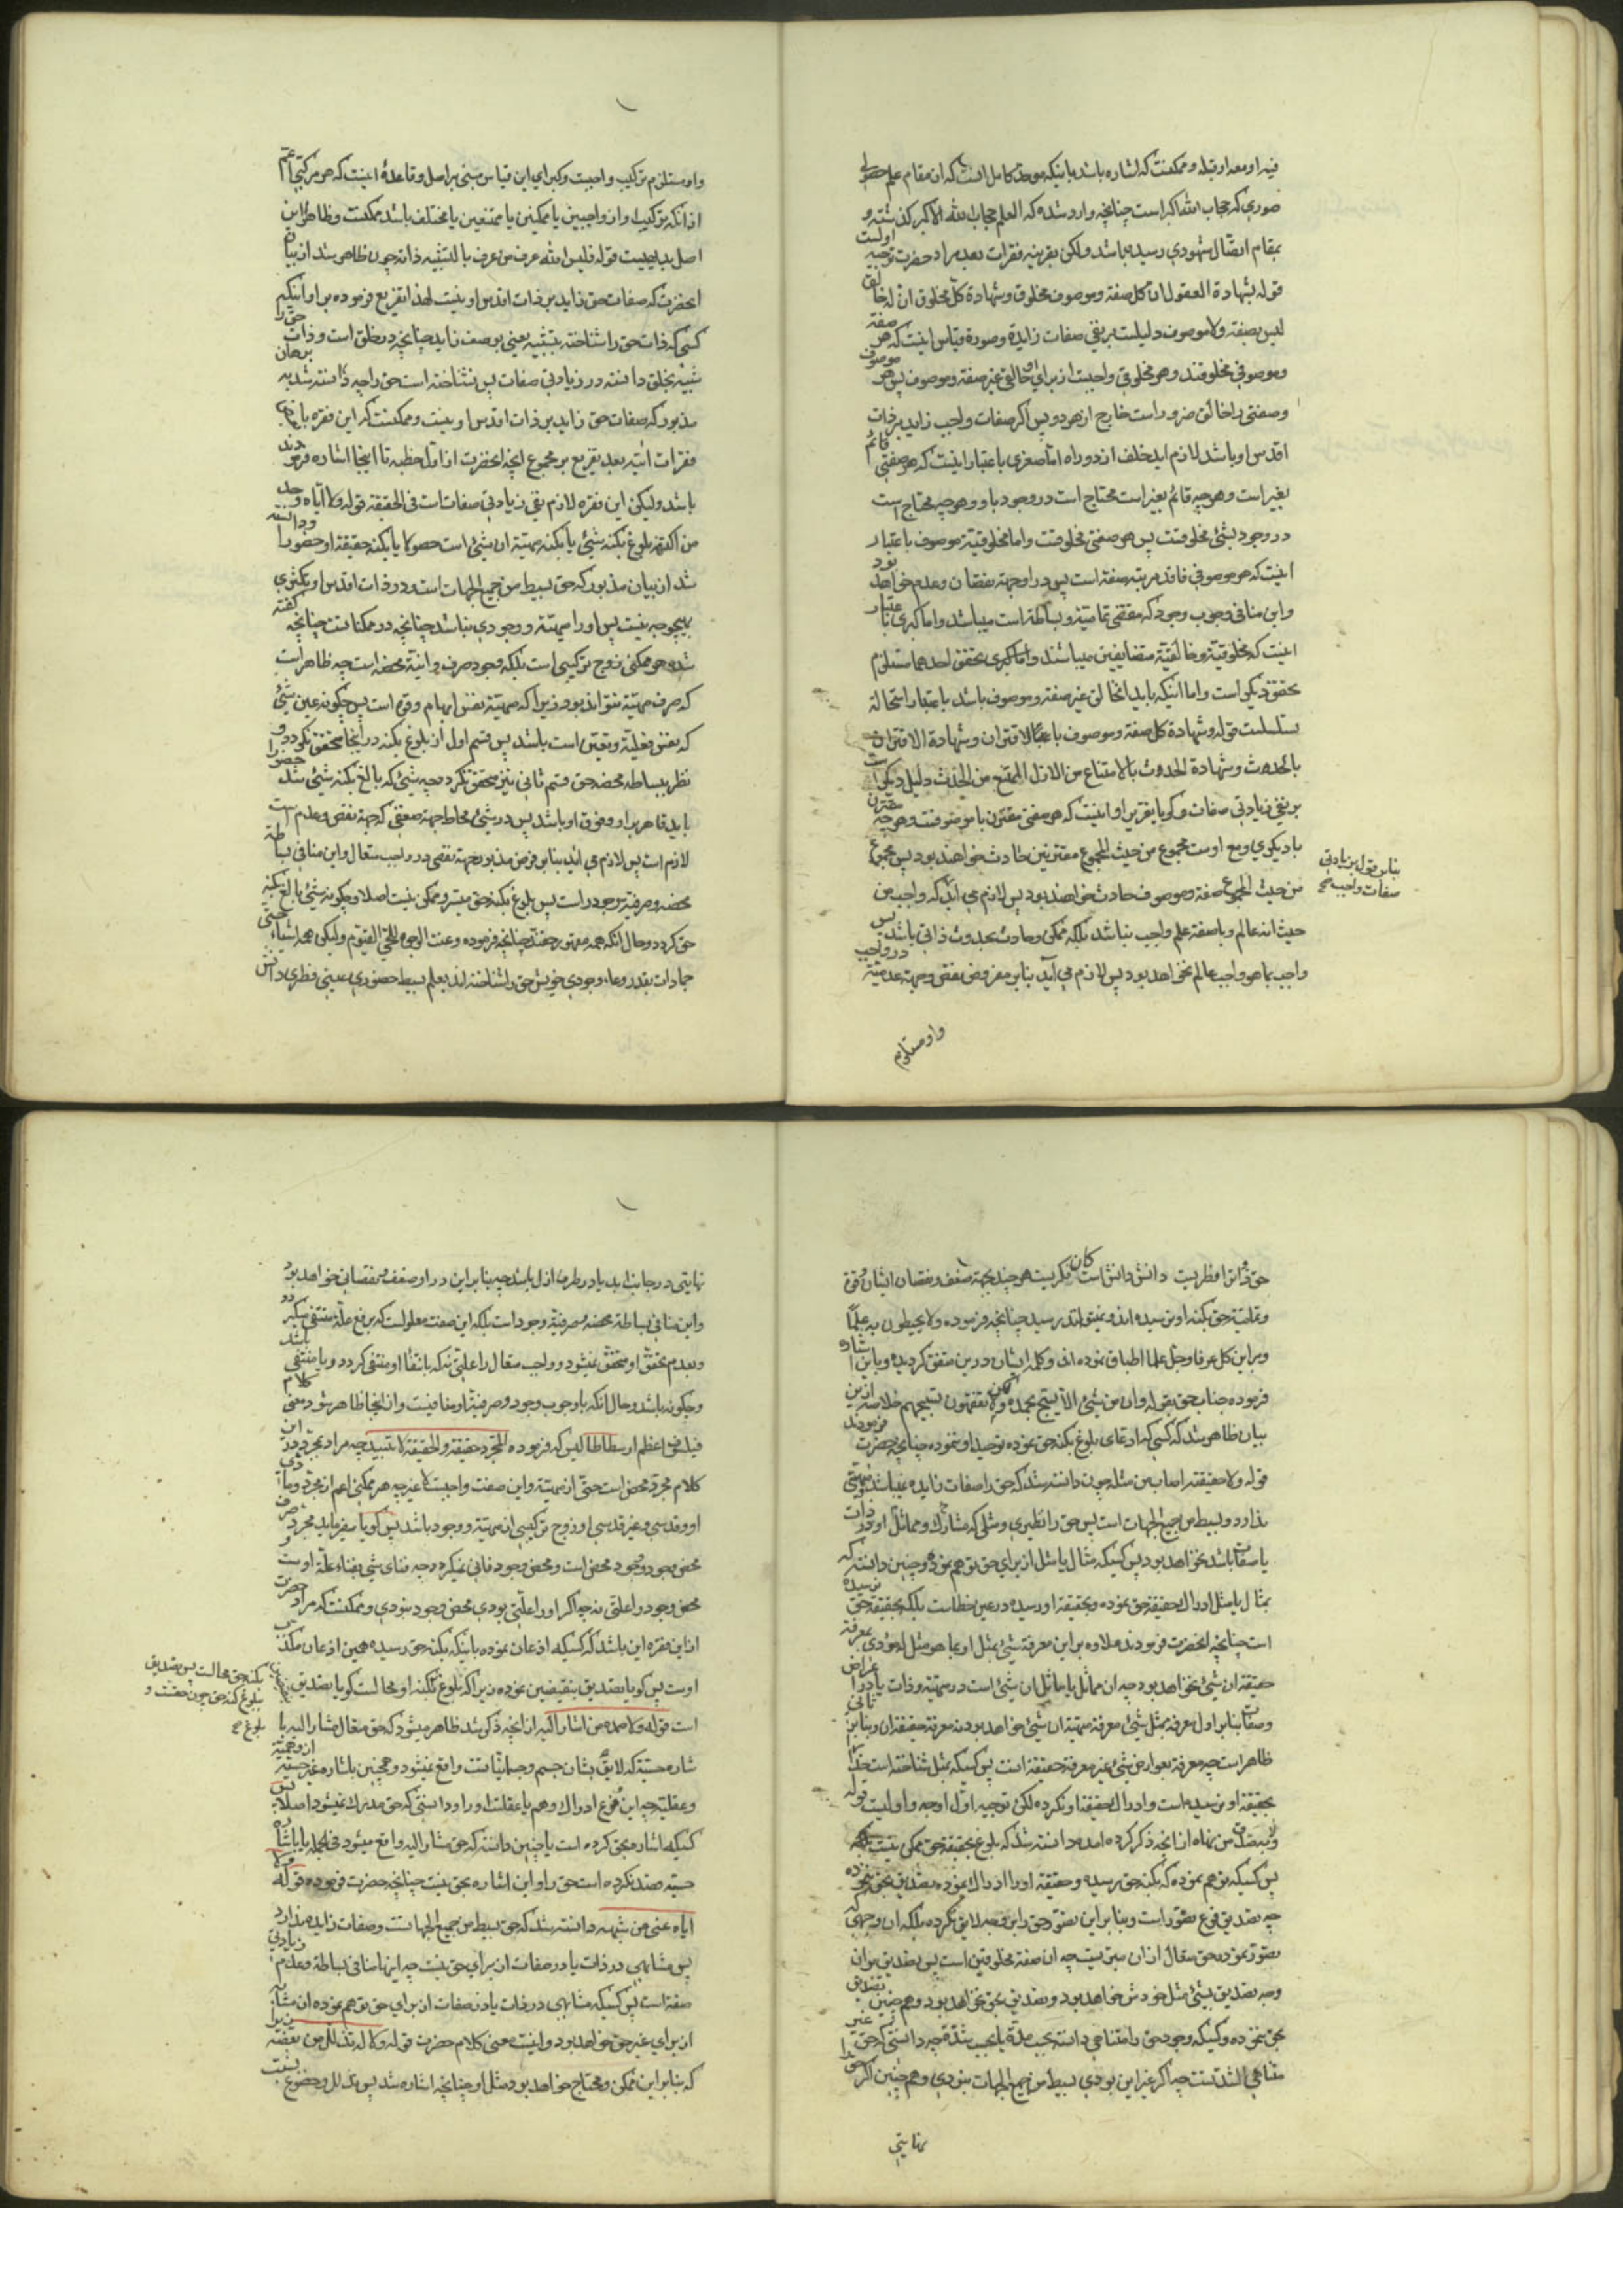 فیه او معه او قبله و ممکنست که اشاره باشد باینکه موحد کامل انست که از مقام علم حصولی
صوری که حجاب الله اکبر است چنانچه وارد شده که العلم حجاب الله الاکبر کذشته و
بمقام اتصال شهودی رسیده باشد ولکن بقرینه فقرات بعد مراد حضرت توجیه اولست
قوله بشهادة العقول ان کل صفة و موصوف مخلوق و شهادة کل مخلوق ان له خالق
لیس بصفة و لا موصوف دلیلست بر نفی صفات زایده و صورة قیاس اینست که هر صفة
و موصوفی مخلوقند و هر مخلوقی واجبست از برای او خالقی غیر صفة و موصوف پس هر موصوف
و صفتی را خالق ضرور است خارج از هر دو پس اکر صفات واجب زاید بر ذات
اقدس او باشد لازم اید خلف از دو راه اما صغری باعتبار اینست که هر صفتی قائم
بغیر است و هر چه قائم بغیر است محتاج است در وجود باو و هر چه محتاج است
در وجود بشئ مخلوقست پس هر صفتی مخلوقست و اما مخلوقیة موصوف باعتبار
اینست که هر موصوفی فاقد مرتبه صفة است پس در او جهة نقصان و عدم خواهد بود
و این منافی وجوب وجود که مقتضی تمامیة و بساطة است میباشد و اما کبری باعتبار
اینست که مخلوقیة و خالقیة متضایفین میباشند و اما کبری تحقق احدهما مستلزم
تحقق دیکری است و اما اینکه باید انخالق غیر صفة و موصوف باشد باعتبار استحالة
تسلسلست قوله و شهادة کل صفة و موصوف بالاقتران و شهادة الاقتران
بالحدوث و شهادة الحدوث بالامتناع من الازل الممتنع من الحدث دلیل دیکر است
بر نفی زیادتی صفات و کویا تقریر او اینست که هر صفتی مقترن با موصوفست و هر چه مقترن
با دیکری و مع اوست مجموع من حیث المجموع مقترنین حادث خواهند بود پس مجموع
من حیث المجموع صفة و موصوف حادث خواهند بود پس لازم می اید که واجب من
حیث انه عالم و با صفة علم واجب نباشد بلکه ممکن و حادث بحدوث ذاتی باشد پس
واجب بما هو واجب عالم نخواهد بود پس لازم می آید بنابر مفروض نقص و جهة عدمیة در واجب
بنابر قول بزیادتی
صفات واجب صح
و او مستلزم
و او مستلزم ترکیب واجبست و کبرای این قیاس مبنی بر اصل و قاعدهٔ اینست که هر مرکبی اعم
از انکه ترکیب او از واجبین یا ممکنین یا ممتنعین یا مختلف باشد ممکنست و ظاهرا این
اصل بدیهیست قوله فلیس الله عرف من عرف بالتشبیه ذاته چون ظاهر شد از بیان
انحضرت که صفات حق زاید بر ذات اقدس او نیست لهذا تفریع فرموده بر او اینکه
کسی که ذات حق را شناخته بتشبیه یعنی بوصف زاید چنانچه در خلق است و ذات حق را
شبیه بخلق دانسته در زیادتی صفات پس نشناخته است حق را چه دانسته شد به برهان
مذبور که صفات حق زاید بر ذات اقدس او نیست و ممکنست که این فقره با
فقرات اتیه بعد تفریع بر مجموع انچه انحضرت از اول خطبه تا اینجا اشاره فرمودند
باشد ولیکن این فقره لازم نفی زیادتی صفات است فی الحقیقة قوله و لا ایاه وحد
من اکتنهه بلوغ بکنه شیئ یا بکنه مهیة ان شیئ است حصولا یا بکنه حقیقة او حضورا و دانسته
شد از بیان مذبور که حق بسیط من جمیع الجهات است و در ذات اقدس او تکثری
بهیچوجه نیست پس او را مهیة و وجودی نباشد چنانچه در ممکناتست چنانچه کفته
شده هر ممکنی زوج ترکیبی است بلکه وجود صرف و انیة محضه است چه ظاهر است
که صرف مهیة نتواند بود زیرا که مهیة نفس ابهام و قوه است پس چکونه عین شیئ
که نفس فعلیة و تعین است باشد پس قسم اول از بلوغ بکنه در اینجا متحقق نکردد و
نظر ببساطه محضه حق قسم ثانی نیز متحقق نکردد چه شیئ که بالغ بکنه شیئ شد حضورا
باید قاهر بر او و فوق او باشد پس در شیئ محاط جهة ضعفی که جهة نقص و عدم است
لازم است پس لازم می اید بنابر فرض مذبور جهة نقصی در واجب متعال و این منافی بساطة
محضه و صرفیة وجود است پس بلوغ بکنه حق میسر و ممکن نیست اصلا و چکونه شیئ بالغ بکنه
حق کردد و حال انکه همه مقهور حقند چنانچه فرموده و عنت الوجوه للحی القیوم ولیکن همه اشیاء حتی
جمادات بقدر وعاء وجودی خویش حق را شناخته اند بعلم بسیط حضوری عینی فطری دانش
حق ذراترا فطریست دانش دانش است کان فکریست هر چند بجهة ضعف و نقصان ایشان و قوة
و تمامیة حق بکنه او نرسیده اند و نمیتوانند رسید چنانچه فرموده و لا یحیطون به علما
و بر این کل عرفا و جل علما اطباق نموده اند و کلمه ایشان در این متفق کردیده و باین اشاره
فرموده جناب حق بقوله و ان من شیئ الا یسبح بحمده ولکن لا تفقهون تسبیحهم خلاصه ازین
بیان ظاهر شد که کسی که ادعای بلوغ بکنه حق نموده توحید او ننموده چنانچه حضرت فرمودند
قوله و لا حقیقته اصاب من مثله چون دانسته شد که حق را صفات زایده نمیباشد و مهیتی
ندارد و بسیط من جمیع الجهات است پس حق را نظیری و مثلی که مشارک و مماثل او در ذات
یا صفات باشد نخواهد بود پس کسیکه مثال یا مثل از برای حق توهم نموده و چنین دانسته که
بمثال یا مثل ادراک حقیقة حق نموده و بحقیقة او رسیده در عین خطاست بلکه بحقیقة حق نرسیده
است چنانچه انحضرت فرمودند علاوه بر این معرفة شیئ بمثل او بما هو مثل له مودی بمعرفة
حقیقة ان شیئ نخواهد بود چه ان مماثل یا مماثل ان شیئ است در مهیة و ذات یا در اعراض
و صفات بنابر اول معرفة بمثل شیئ معرفة مهیة ان شیئ خواهد بود نه معرفة حقیقة ان و بنابر ثانی
ظاهر است چه معرفة بعوارض شیئ غیر معرفة حقیقة انست پس کسیکه بمثل شناخته است خدا را
بحقیقة او نرسیده است و ادراک حقیقت او نکرده لکن توجیه اول اوجه و اولیست قوله
و لا به صدق من نهاه از انچه ذکر کرده امد و دانسته شد که بلوغ بحقیقة حق ممکن نیست
پس کسیکه توهم نموده که بکنه حق رسیده و حقیقة او را ادراک نموده تصدیق بحق ننموده
چه تصدیق فرع تصور است و بنابر این تصور حق را بوجه لایق نکرده بلکه ان وجهی که
تصور نموده حق متعال از ان مبریست چه ان صفة مخلوقین است پس تصدیق بر ان
وجه تصدیق بشیئ مثل خودش خواهد بود و تصدیق بحق نخواهد بود و همچنین تصدیق
بحق ننموده کسیکه وجود حق را متناهی دانسته بحسب مدة یا بحسب شدة چه دانستی که حق
متناهی الشدت نیست چه اکر غیر این بودی بسیط من جمیع الجهات نبودی و همچنین اکر حق را
نهایتی
نهایتی در جانب ابد یا در طرف ازل باشد چه بنابر این در او ضعف و نقصانی خواهد بود
و این منافی بساطة محضه و صرفیة وجود است بلکه این صفت معلولست که برفع علة منتفی میکردد
و بعدم تحقق او متحقق نمیشود و واجب متعال را علتی نه که بانتفاء او منتفی کردد و یا منتفی باشد
و چکونه باشد و حال انکه با وجوب وجود و صرفیة او منافیست و از اینجا ظاهر شود معنی کلام
فیلسوف اعظم ارسطاطالیس که فرموده للمجرد حقیقة و الحقیقة لا تبید چه مراد بمجرد در این
کلام مجرد محض است حتی از مهیة و این صفت واجبست لا غیر چه هر ممکنی اعم از مجرد و مادی
او و قدسی و غیر قدسی او زوج ترکیبی از مهیة و وجود باشد پس کویا میفرماید مجرد صرف
محض وجود و وجود محض است و محض وجود فانی نمیکردد چه فنای شیئ بفناء علة اوست و
محض وجود را علتی نه چه اکر او را علتی بودی محض وجود نبودی و ممکنست که مراد حضرت
از این فقره این باشد که کسیکه اذعان نموده باینکه بکنه حق رسیده همین اذعان مکذب
اوست پس کویا تصدیق بنقیضین نموده زیرا که بلوغ بکنه او محالست کویا تصدیق
است قوله و لا صمده من اشار الیه از انچه ذکر شد ظاهر میشود که حق متعال مشار الیه با
شاره حسیة که لایق بشان جسم و جسمانیاتست واقع نمیشود و همچنین باشاره غیر حسیة از وهمیة
و عقلیة چه این فرع ادراک وهم یا عقلست او را و دانستی که حق مدرک نمیشود اصلا پس
کسیکه اشاره بحق کرده است یا چنین دانسته که حق مشار الیه واقع میشود فی الجمله یا باشاره
حسیة صمد نکرده است حق را و این اشاره بحق نیست چنانچه حضرت فرموده قوله و لا
ایاه عنی من شبهه دانسته شد که حق بسیط من جمیع الجهاتست و صفات زایده ندارد
پس مشابهی در ذات یا در صفات از برای حق نیست چه اینها منافی بساطة و عدم زیادتی
صفة است پس کسیکه مشابهی در ذات یا در صفات از برای حق توهم نموده ان مشابه
از برای غیر حق خواهد بود و اینست معنی کلام حضرت قوله و لا له تذلل من بعضه
که بنابر این ممکن و محتاج خواهد بود مثل او چنانچه اشاره شد پس تذلل و خضوع نسبت
بکنه حق محالست پس تصدیق
ببلوغ کنه حق چون حقست و
بلوغ صح